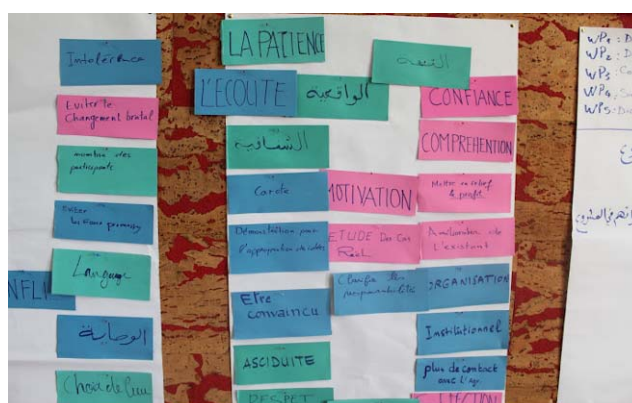 Intolérence
Eviter le
Changement brutal
participants
Eviter
Language
NFLI
الوصاية
Choix de lieu
LA PATIENCE
الثقة
L'ECOUTE
الواقعية
CONFIANCE
الشفافية
COMPREHENTION
MOTIVATION
Mettre en relief
le profit
Démonstration pour
l'appropriation des idées
ETUDE Des Cas
Réel
Amélioration de
L'existant
Etre
convaincu
Clarifier les
responsabilités
ORGANISATION
Institutionnel
ASCIDUITE
plus de contact
avec l'agr.
RESPET
ELECTION
WP1 : D
WP2 : D
WP3 : Co
WP4 : Su
WP5 : Di